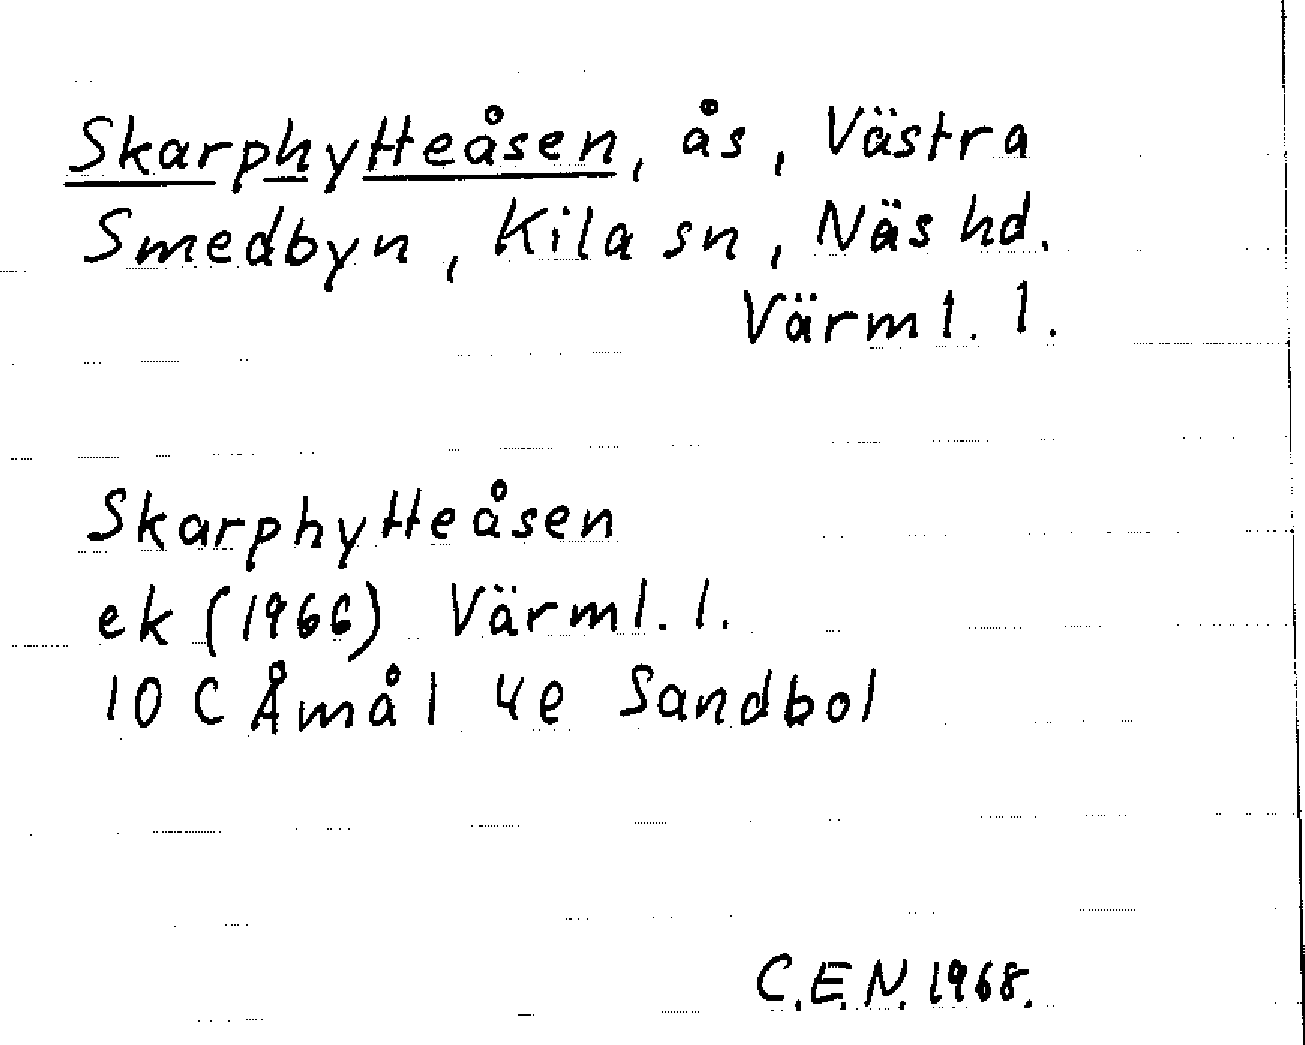 Skarphytteåsen, ås, Västra
Smedbyn, Kila sn, Näs hd.
Värml. l.
Skarphytteåsen
ek (1966) Värml. l.
10 C Åmål 4e Sandbol
C.E.N. 1968.